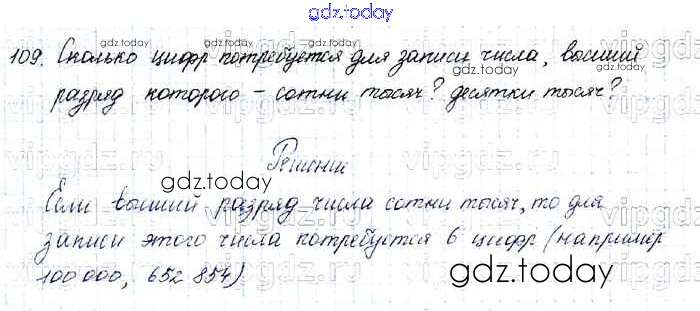 gdz.today
109. Сколько цифр потребуется для записи числа, высший
gdz.today
разряд которого - сотни тысяч? десятки тысяч?
vipgdz.ru
Решение
gdz.today
Если высший разряд числа сотни тысяч, то для
записи этого числа потребуется 6 цифр (например
100 000, 652 854)
gdz.today
gdz.today